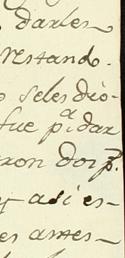 darles
restando.
seles dio-
fue pa dar
ron dos p.
y asi es-
es antes-